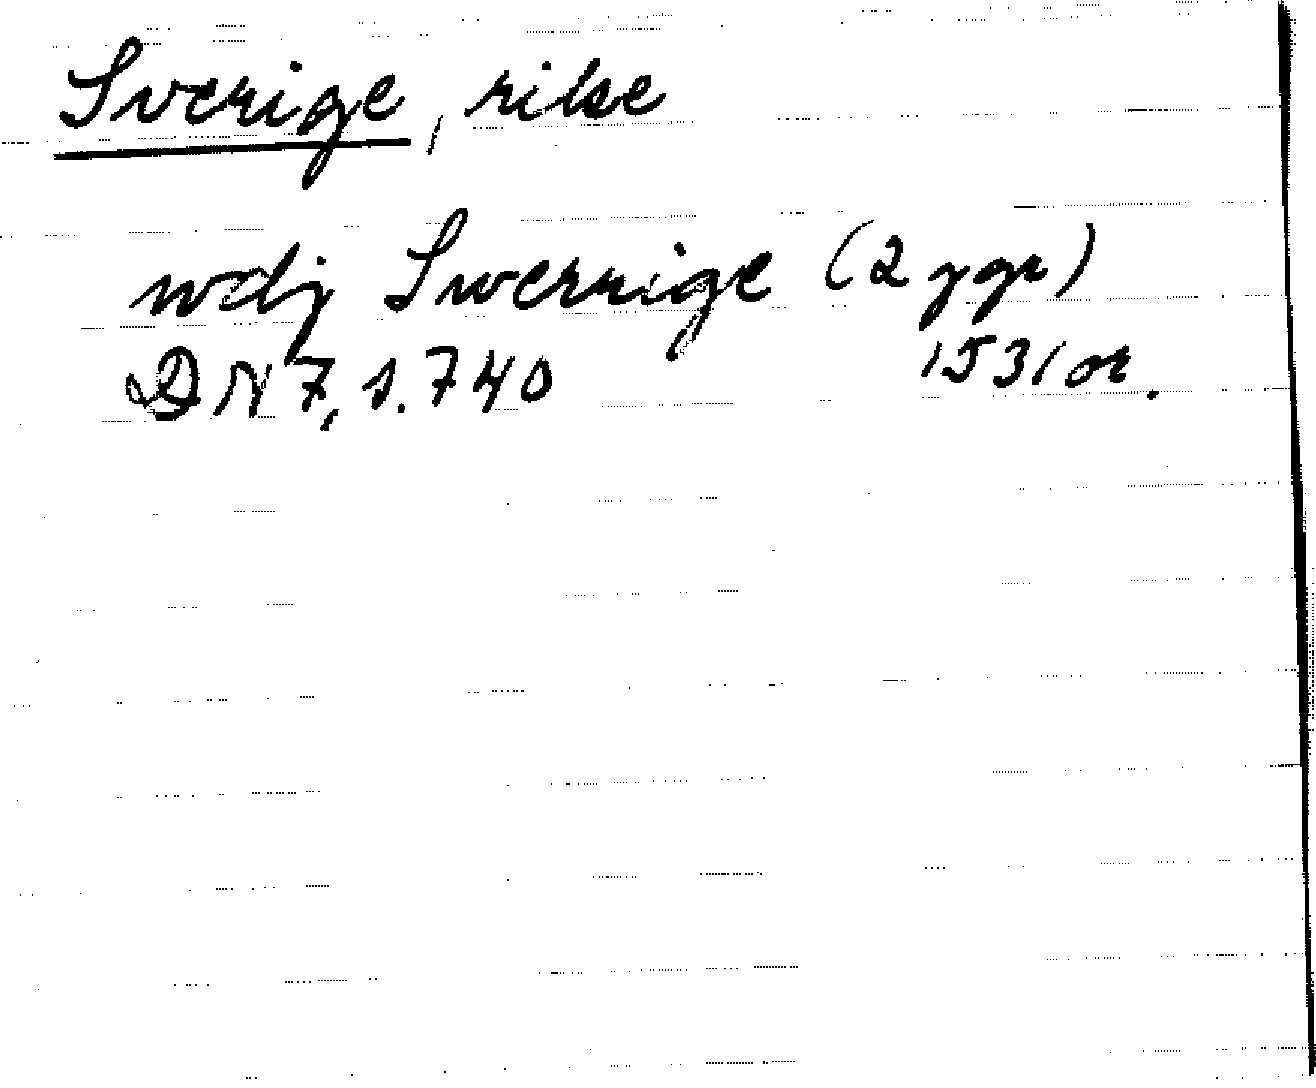 Sverige, rike
wdj Swerrige (2 ggr)
DN 7, s. 740 1531 or.